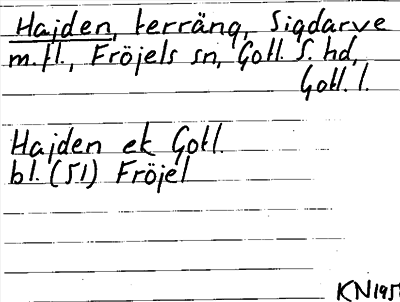 Hajden, terräng, Sigdarve
m.fl., Fröjels sn, Gotl. S. hd,
Gotl. l.
Hajden ek Gotl.
bl. (51) Fröjel
KN 195